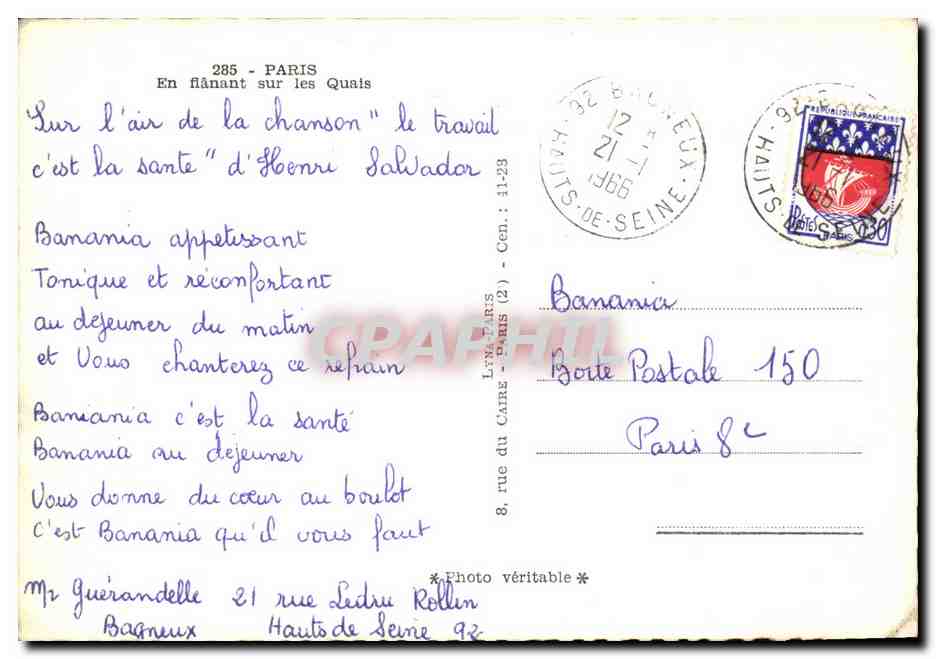 285 - PARIS
En flânant sur les Quais
Sur l'air de la chanson " le travail
c'est la sante" d'Henri Salvador
Banania appetissant
Tonique et réconfortant
au dejeuner du matin
et Vous chanterez ce refrain
Baniania c'est la santé
Banania au dejeuner
Vous donne du cœur au boulot
C'est Banania qu'il vous faut
Mr Guérandelle 21 rue Ledru Rollin
Bagneux Hauts de Seine 92
8, rue du CAIRE - PARIS (2e) - Cen. : 41-23
LYNA-PARIS
92 BAGNEUX
12
21 - 1
1966
HAUTS-DE-SEINE
REPUBLIQUE FRANÇAISE
POSTES
0,30
PARIS
1966
HAUTS
Banania
Boite Postale 150
Paris 8e
*Photo véritable*
CPAPHIL